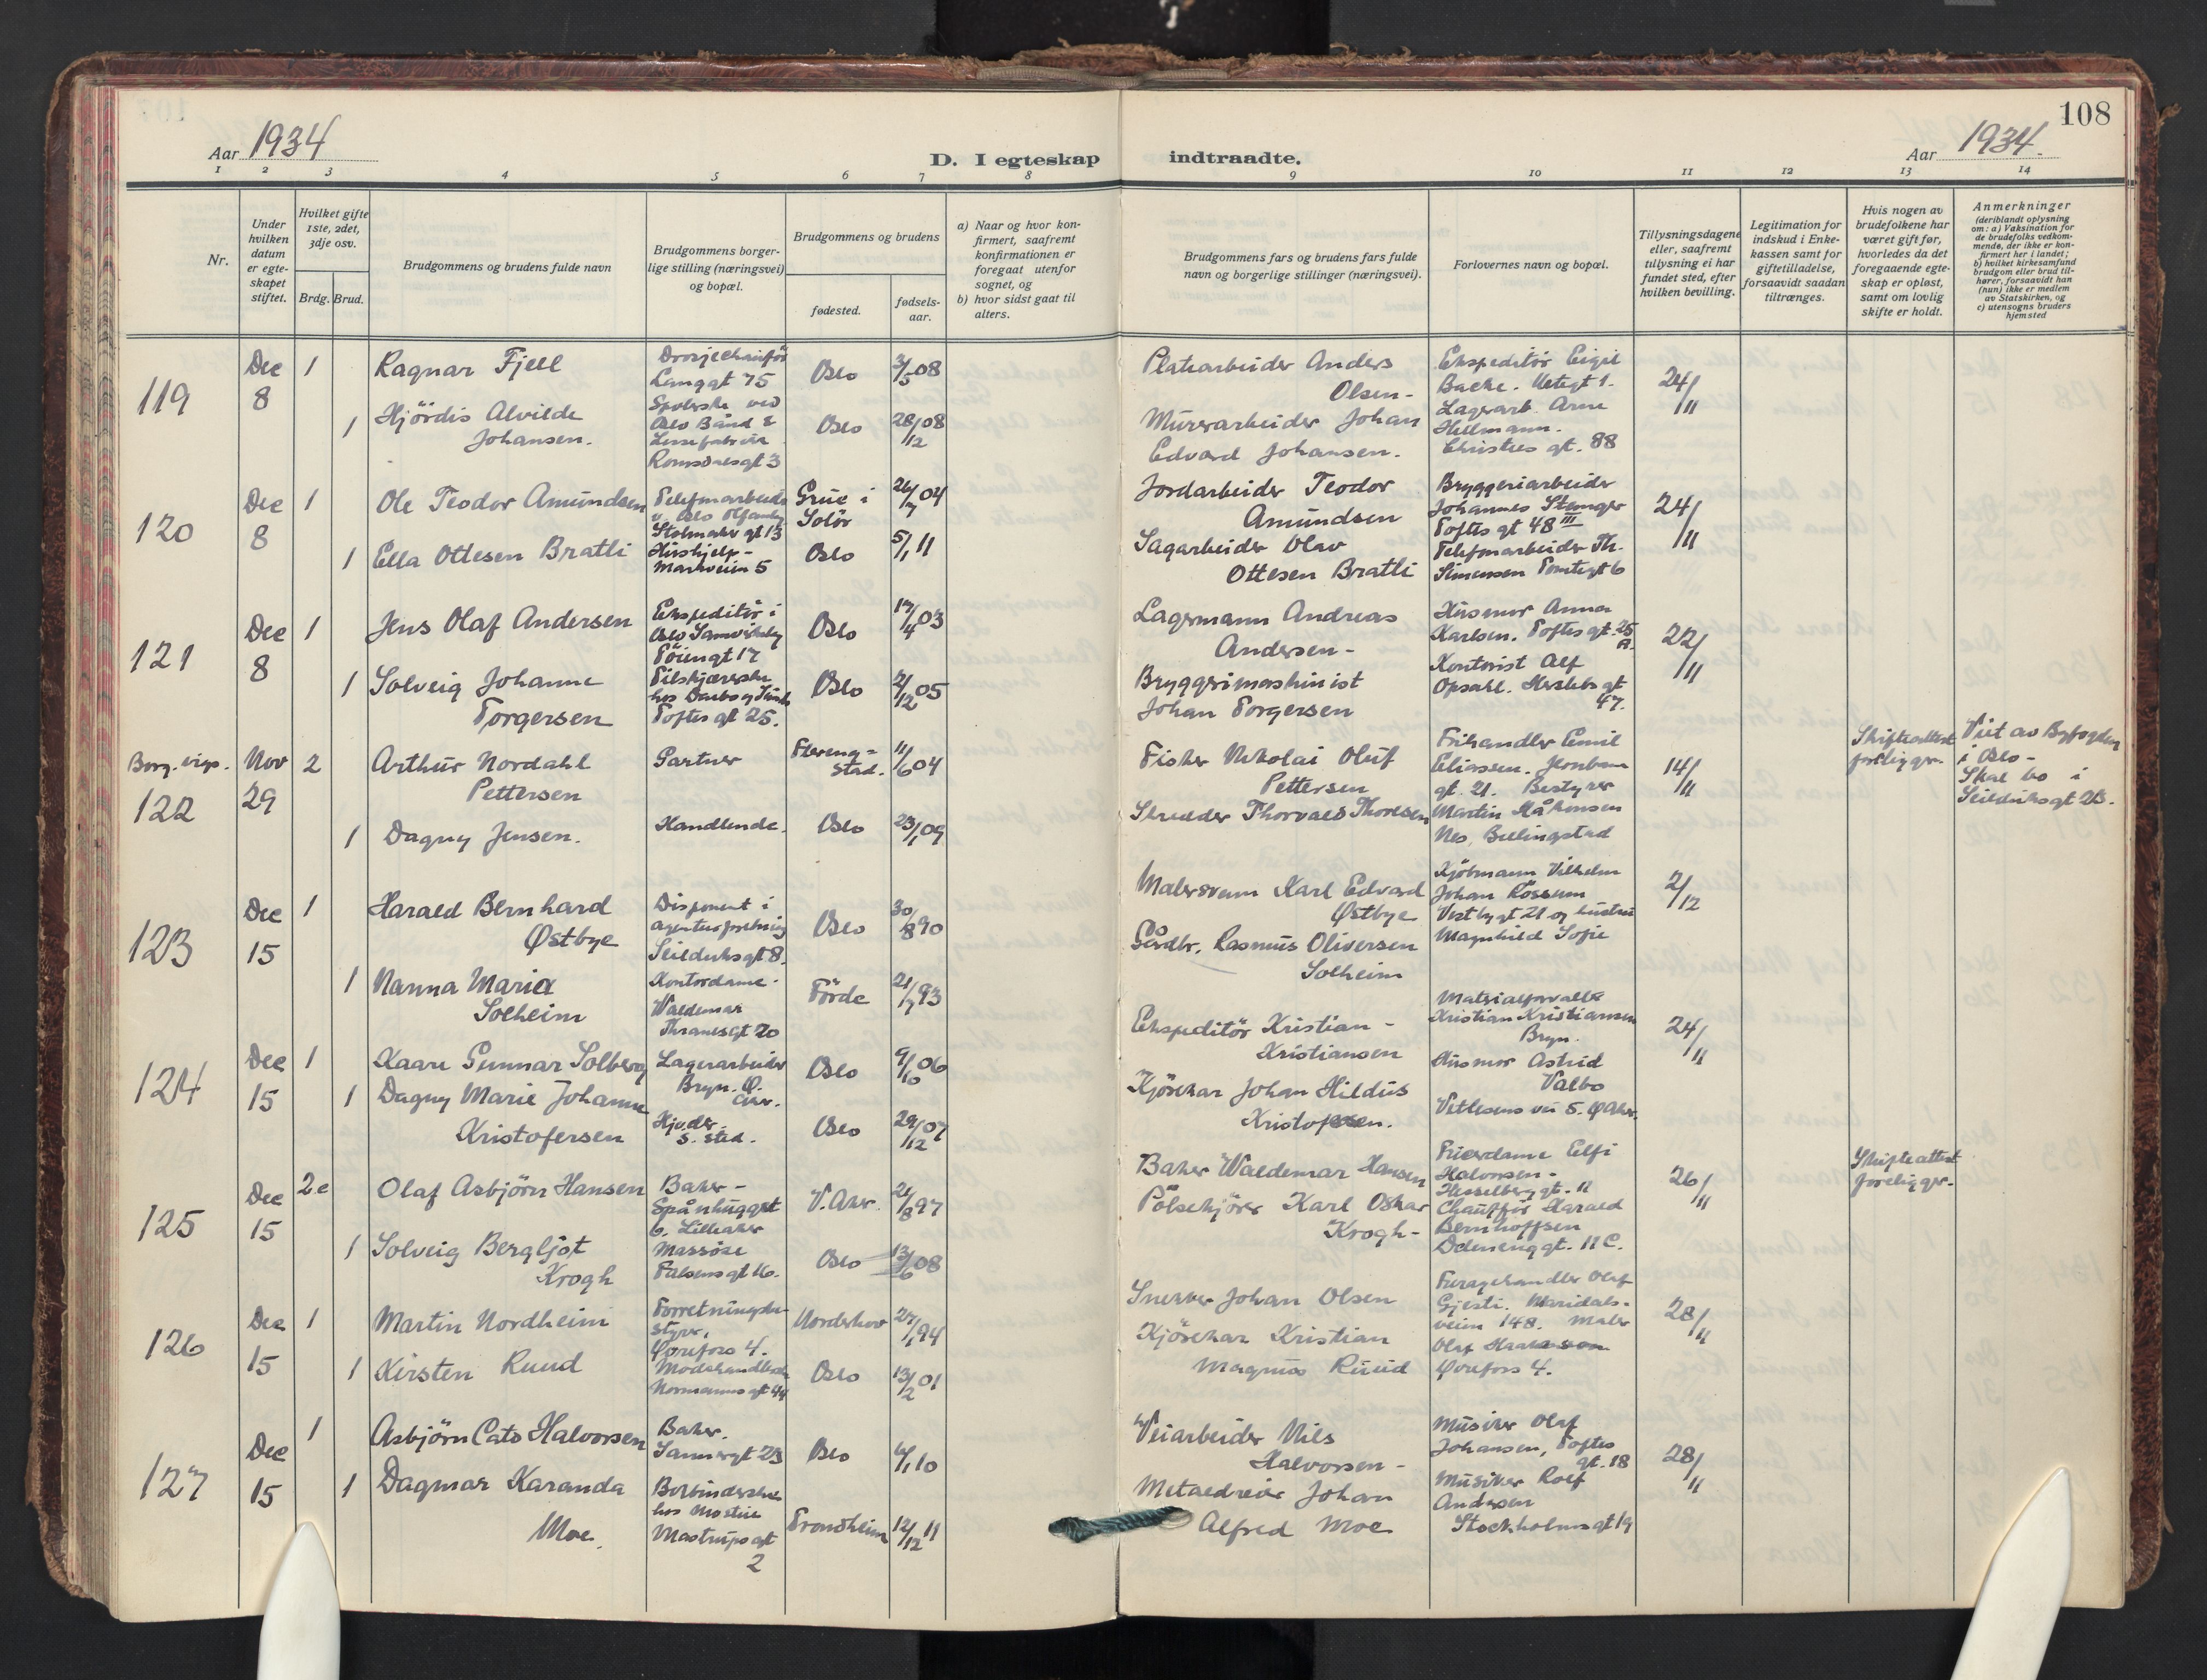 108
Aar 1934
D. I egteskap indtraadte.
Aar 1934
1 2 3 4 5 6 7 8 9 10 11 12 13 14
Nr.
Under hvilken datum er egteskapet stiftet.
Hvilket gifte 1ste, 2det, 3dje osv.
Brdg. Brud.
Brudgommens og brudens fulde navn
Brudgommens borgerlige stilling (næringsvei) og bopæl.
Brudgommens og brudens
fødested.
fødselsaar.
a) Naar og hvor konfirmert, saafremt konfirmationen er foregaat utenfor sognet, og
b) hvor sidst gaat til alters.
Brudgommens fars og brudens fars fulde navn og borgerlige stillinger (næringsvei).
Forlovernes navn og bopæl.
Tillysningsdagene eller, saafremt tillysning ei har fundet sted, efter hvilken bevilling.
Legitimation for indskud i Enkekassen samt for giftetilladelse, forsaavidt saadan tiltrænges.
Hvis nogen av brudefolkene har været gift før, hvorledes da det foregaaende egteskap er opløst, samt om lovlig skifte er holdt.
Anmerkninger
(deriblandt oplysning om: a) Vaksination for de brudefolks vedkommende, der ikke er konfirmert her i landet; b) hvilket kirkesamfund brudgom eller brud tilhører, forsaavidt han (hun) ikke er medlem av Statskirken, og c) utensogns bruders hjemsted
119
Dec 8
1
Ragnar Fjell
Langgt 75
Oslo
3/5 08
Platearbeider Anders
Olsen -
Ekspeditör Eigil
Backe.
24/11
1
Hjördis Alvilde
Johansen.
Spolerske ved
Oslo Bånd &
Romsdalsgt 3
Oslo
28/12 08
Murerarbeider Johan
Edvard Johansen.
Lagerarb. Arne
Hellmann.
Christies gt. 88
120
Dec 8
1
Ole Teodor Amundsen
Telefonarbeider
Grue i
Solör
26/7 04
Jordarbeider Teodor
Amundsen
Bryggeriarbeider
Johannes
Toftes gt 48 III
24/11
1
Ella Ottesen Bratli
Hushjelp -
Markveien 5
Oslo
5/1 11
Sagarbeider Olav
Ottesen Bratli
Telefonarbeider Th.
Simensen
121
Dec 8
1
Jens Olaf Andersen
Ekspeditör i
Töiengt 17
Oslo
17/4 03
Lagermann Andreas
Andersen -
Husmor Anna
Karlsen. Toftes gt. 25 A.
22/11
1
Solveig Johanne
Torgersen
Toftes gt 25.
Oslo
2/12 05
Bryggerimaskinist
Johan Torgersen
Kontorist Alf
Opsahl. Heslebs gt
47.
Borg. vigs.
122
Nov 29
2
Arthur Nordahl
Pettersen
Gartner
11/6 04
Fisker Nikolai Oluf
Pettersen
Frihandler Emil
Eliassen.
gt. 21. Bestyrer
14/11
Skifteattest
foreligger.
Viet av Byfogden
i Oslo -
Skal bo i
Seilduksgt 25.
1
Dagny Jensen.
Handlende.
Oslo
23/1 09
Skredder Thorvald Thoresen
Martin Håkonsen
Nes, Billingstad
123
Dec 15
1
Harald Bernhard
Østbye
Disponent i
agenturforretning
Seilduksgt 8.
Oslo
30/8 90
Malersvenn Karl Edvard
Østbye
Kjöbmann Vilhelm
Johan Rossum
Vestbygt 21 og hustru
Magnhild Sofie
2/12
1
Nanna Maria
Solheim
Kontordame.
Waldemar
Thranesgt 70
Förde
21/7 93
Gårdbr. Rasmus Oliversen
Solheim
124
Dec 15
1
Kaare Gunnar Solberg
Lagerarbeider
Bryn. Ø.
Aker.
Oslo
9/10 06
Ekspeditör Kristian -
Kristiansen
Materialforvalter
Kristian Kristiansen
Bryn.
24/11
1
Dagny Marie Johanne
Kristofersen
s. sted.
Oslo
29/12 07
Kjörekar Johan Hildus
Kristofersen.
Husmor Astrid
Valbo
Vetlesens vei 5. Ø Aker.
125
Dec 15
2e
Olaf Asbjörn Hansen
Baker -
Spånhugget
6. Lilleaker
V. Aker.
21/8 97
Baker Waldemar Hansen
Friserdame Elfi
Halvorsen -
Hesselberg gt. 11
26/11
Skifteattest
foreligger.
1
Solveig Bergljot
Krogh
Massöse
Falsens gt 16.
Oslo
13/6 08
Pölsekjörer Karl Oskar
Krogh -
Chaufför Harald
Bernhoffsen
Dælenenggt. 11 C.
126
Dec 15
1
Martin Nordheim
Forretningsbestyrer,
Ørefoss 4.
Norderhov
27/1 94
Snekker Johan Olsen
Furagehandler Olaf
Gjesti. Maridalsveien 148. Maler
28/11
1
Kirsten Ruud
Modehandler
Normannsgt 44
Oslo
13/2 01
Kjörekar Kristian
Magnus Ruud
Olaf
Ørefoss 4.
127
Dec 15
1
Asbjörn Cato Halvorsen
Baker.
Sannergt 23
Oslo
4/1 10
Veiarbeider Nils
Halvorsen -
Musiker Olaf
Johansen, Toftes
gt. 18
28/11
1
Dagmar Karanda
Moe.
Bokbinderske
Mastrups gt
2
Trondheim
12/12 11
Metaldreier Johan
Alfred Moe
Musiker Rolf
Andersen
Stockholmsgt 19